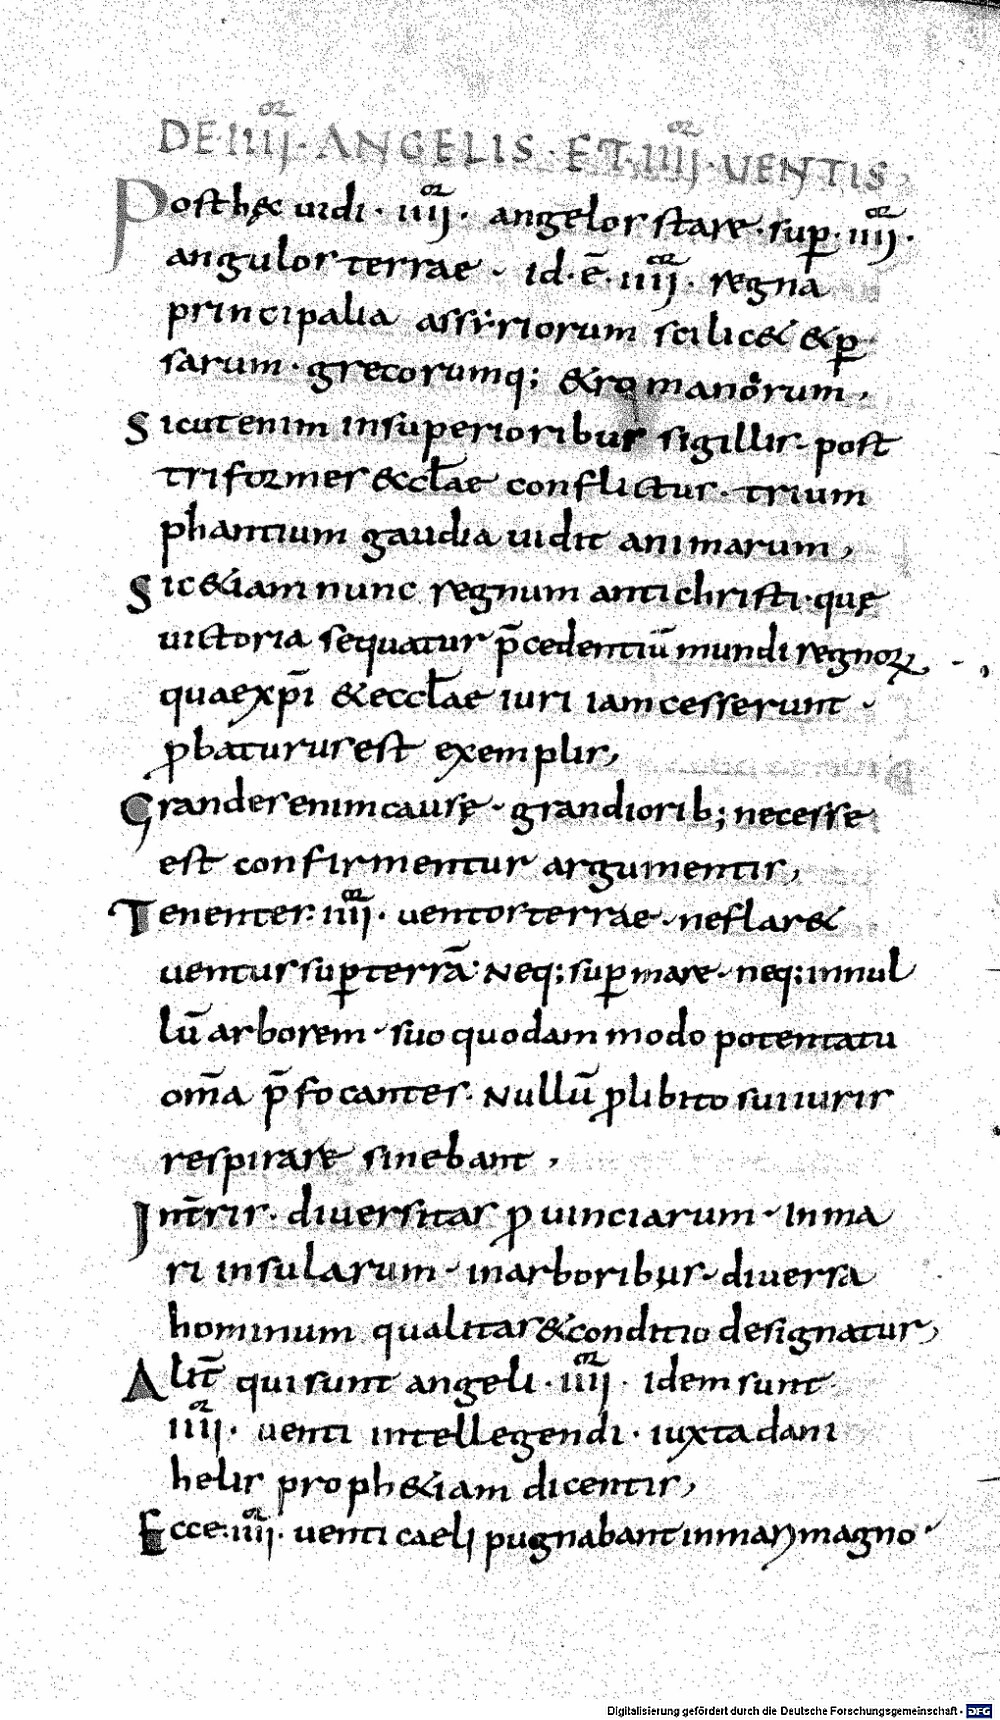 DE·IIII^or·ANGELIS·ET·IIII^or·UENTIS,
Post hęc uidi· iiii^or· angelos stare·sup̄·iiii^or·
angulos terrae· id·ē·iiii^or· regna
principalia assiriorum scilic& &p̄
sarum·grecorumq; &romanorum,
Sicut enim insuperioribus sigillis· post
triformes &ccl̄ae conflictus· trium
phantium gaudia uidit animarum,
Sic &iam nunc regnum antichristi·quę
uictoria sequatur p̄cedentiū mundi regnoꝝ
quae xp̄i &eccl̄ae iuri iam cesserunt·
ꝓbaturus est exemplis,
Grandes enim causę· grandiorib; necesse
est confirmentur argumentis,
Tenentes·iiii^or· uentos terrae· ne flar&
uentus sup̄ terrā·Neq; sup̄ mare·neq; in nul
lū arborem·suo quodam modo potentatu
om̄a p̄focantes·Nullū ꝓ libito sui iuris
respirare sinebant,
In tr̄is·diuersitas ꝓuinciarum· In ma
ri insularum·in arboribus·diuersa
hominum qualitas &conditio designatur,
Alit̄ qui sunt angeli·iiii^or· idem sunt
iiii^or· uenti intellegendi·iuxta dani
helis proph&iam dicentis,
Ecce·iiii^or· uenti caeli pugnabant in mari magno·
Digitalisierung gefördert durch die Deutsche Forschungsgemeinschaft - DFG